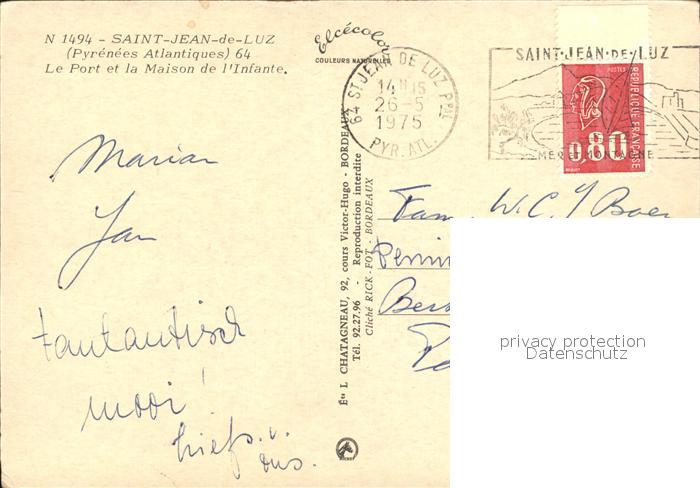 N 1494 - SAINT-JEAN-de-LUZ
(Pyrénées Atlantiques) 64
Le Port et la Maison de l'Infante.
Elcécolor
COULEURS NATURELLES
64 ST JEAN DE LUZ PPAL
14H15
26-5
1975
PYR. ATL.
SAINT·JEAN·DE·LUZ
MER ET MONTAGNE
POSTES
REPUBLIQUE FRANÇAISE
0,80
Marian
Jan
fantastisch
mooi!
liefs. v.
ons.
Éts L CHATAGNEAU, 92, cours Victor-Hugo - BORDEAUX
Tél. 92.27.96 - Reproduction interdite
Cliché RICK-FOT - BORDEAUX
Fam. W.C.
privacy protection
Datenschutz